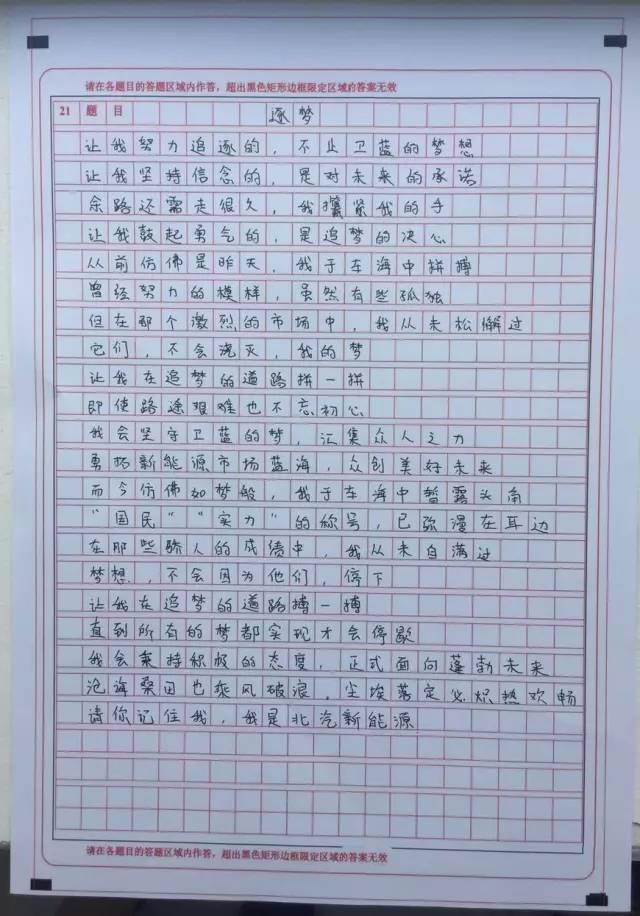 请在各题目的答题区域内作答，超出黑色矩形边框限定区域的答案无效
21 题目 逐梦
让我努力追逐的，不止卫蓝的梦想
让我坚持信念的，是对未来的承诺
余路还需走很久，我攥紧我的手
让我鼓起勇气的，是追梦的决心
从前仿佛是昨天，我于车海中拼搏
曾经努力的模样，虽然有些孤独
但在那个激烈的市场中，我从未松懈过
它们，不会浇灭，我的梦
让我在追梦的道路拼一拼
即使路途艰难也不忘初心
我会坚守卫蓝的梦，汇集众人之力
勇拓新能源市场蓝海，众创美好未来
而今仿佛如梦般，我于车海中暂露头角
“国民”“实力”的称号，已弥漫在耳边
在那些骄人的成绩中，我从未自满过
梦想，不会因为他们，停下
让我在追梦的道路搏一搏
直到所有的梦都实现才会停歇
我会秉持积极的态度，正式面向蓬勃未来
沧海桑田也乘风破浪，尘埃落定必炽热欢畅
请你记住我，我是北汽新能源
请在各题目的答题区域内作答，超出黑色矩形边框限定区域的答案无效